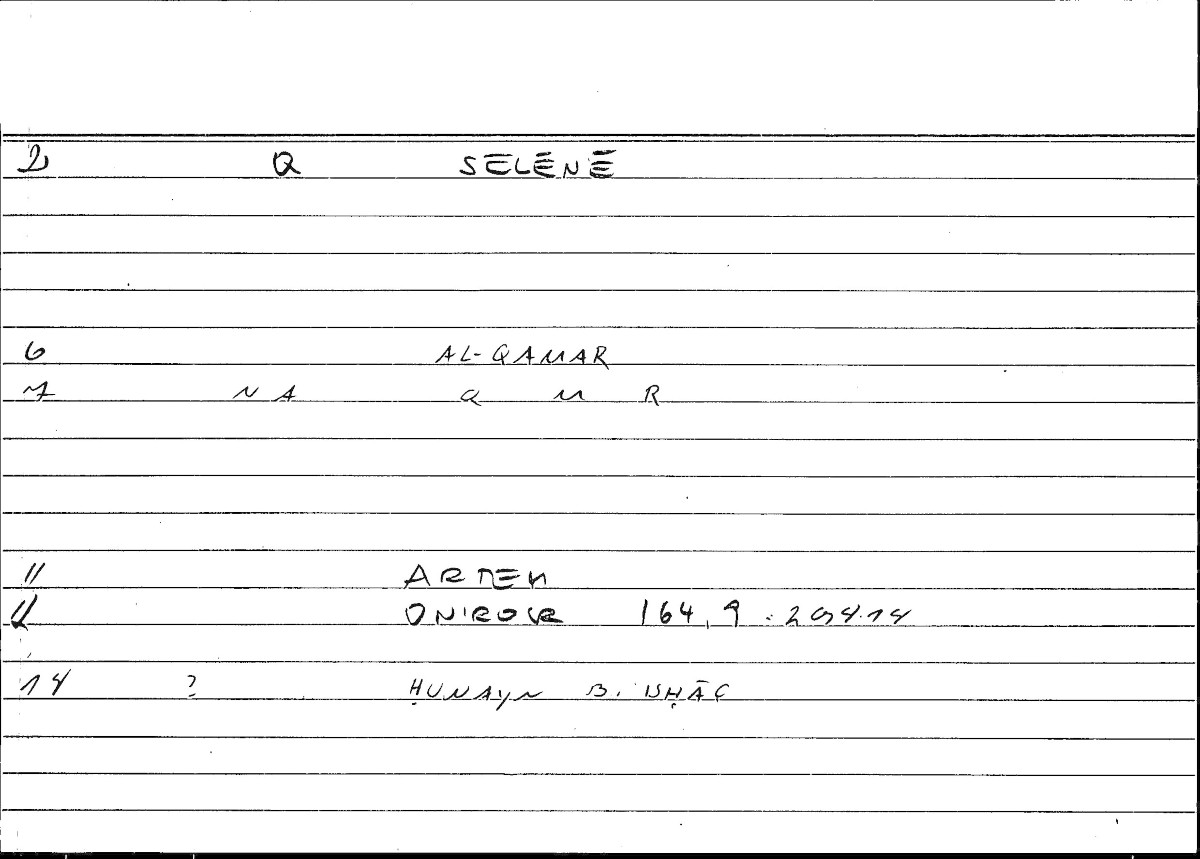 2 Q SELĒNĒ
6 AL-QAMAR
7 NA Q M R
11 ARTEM
ONIROCR 164,9
14 ? ḤUNAYN B. ISḤĀQ